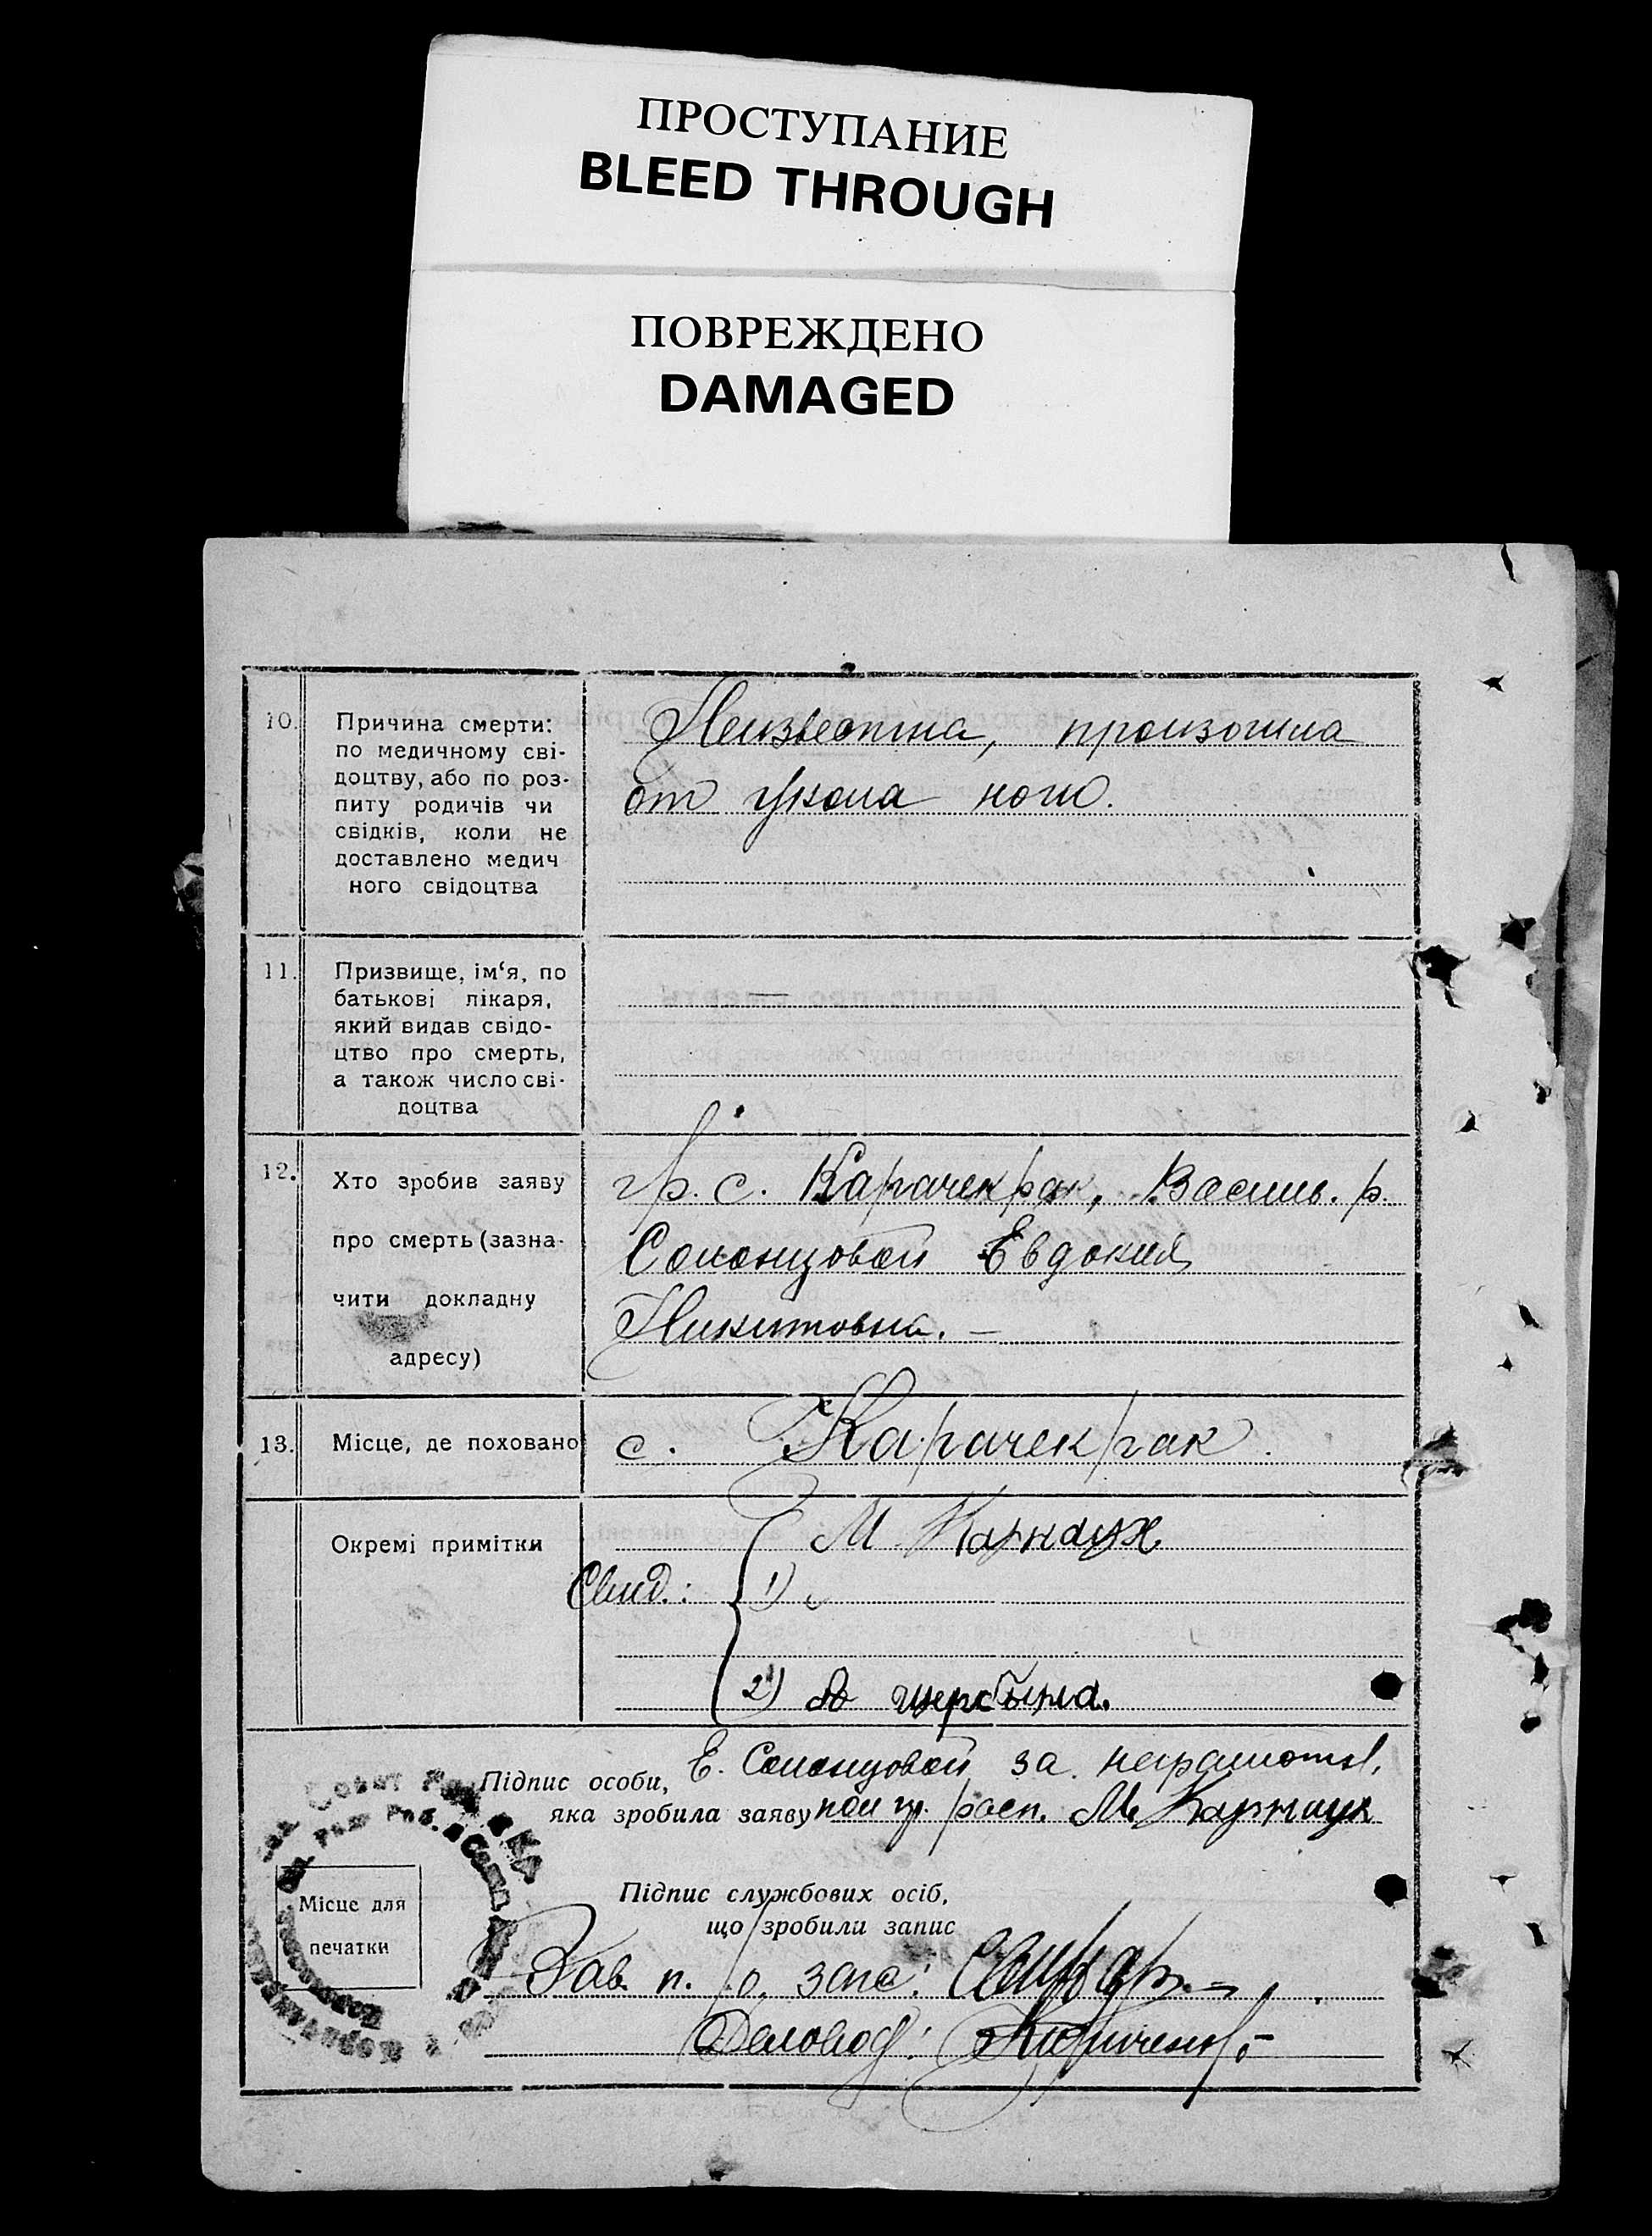 ПРОСТУПАНИЕ
BLEED THROUGH
ПОВРЕЖДЕНО
DAMAGED
10. Причина смерти:
по медичному сві-
доцтву, або по роз-
питу родичів чи
свідків, коли не
доставлено медич
ного свідоцтва
Неизвестна, произошла
от укола ного.
11. Призвище, ім‘я, по
батькові лікаря,
який видав свідо-
цтво про смерть,
а також число сві-
доцтва
—
12. Хто зробив заяву
про смерть (зазна-
чити докладну
адресу)
гр. с. Карачекрак, Васильв. р.
Солонцовой Евдокия
Никитовна. —
13. Місце, де поховано
с. Карачекрак.
Окремі примітки
М Карнаух
Свид.: 1)
2) щербына.
Підпис особи,
яка зробила заяву
Е. Солонцовой за неграмотн.
расп. М Карнаух
Місце для
печатки
Підпис службових осіб,
що зробили запис
Зав. п. о. загс:
Деловод: